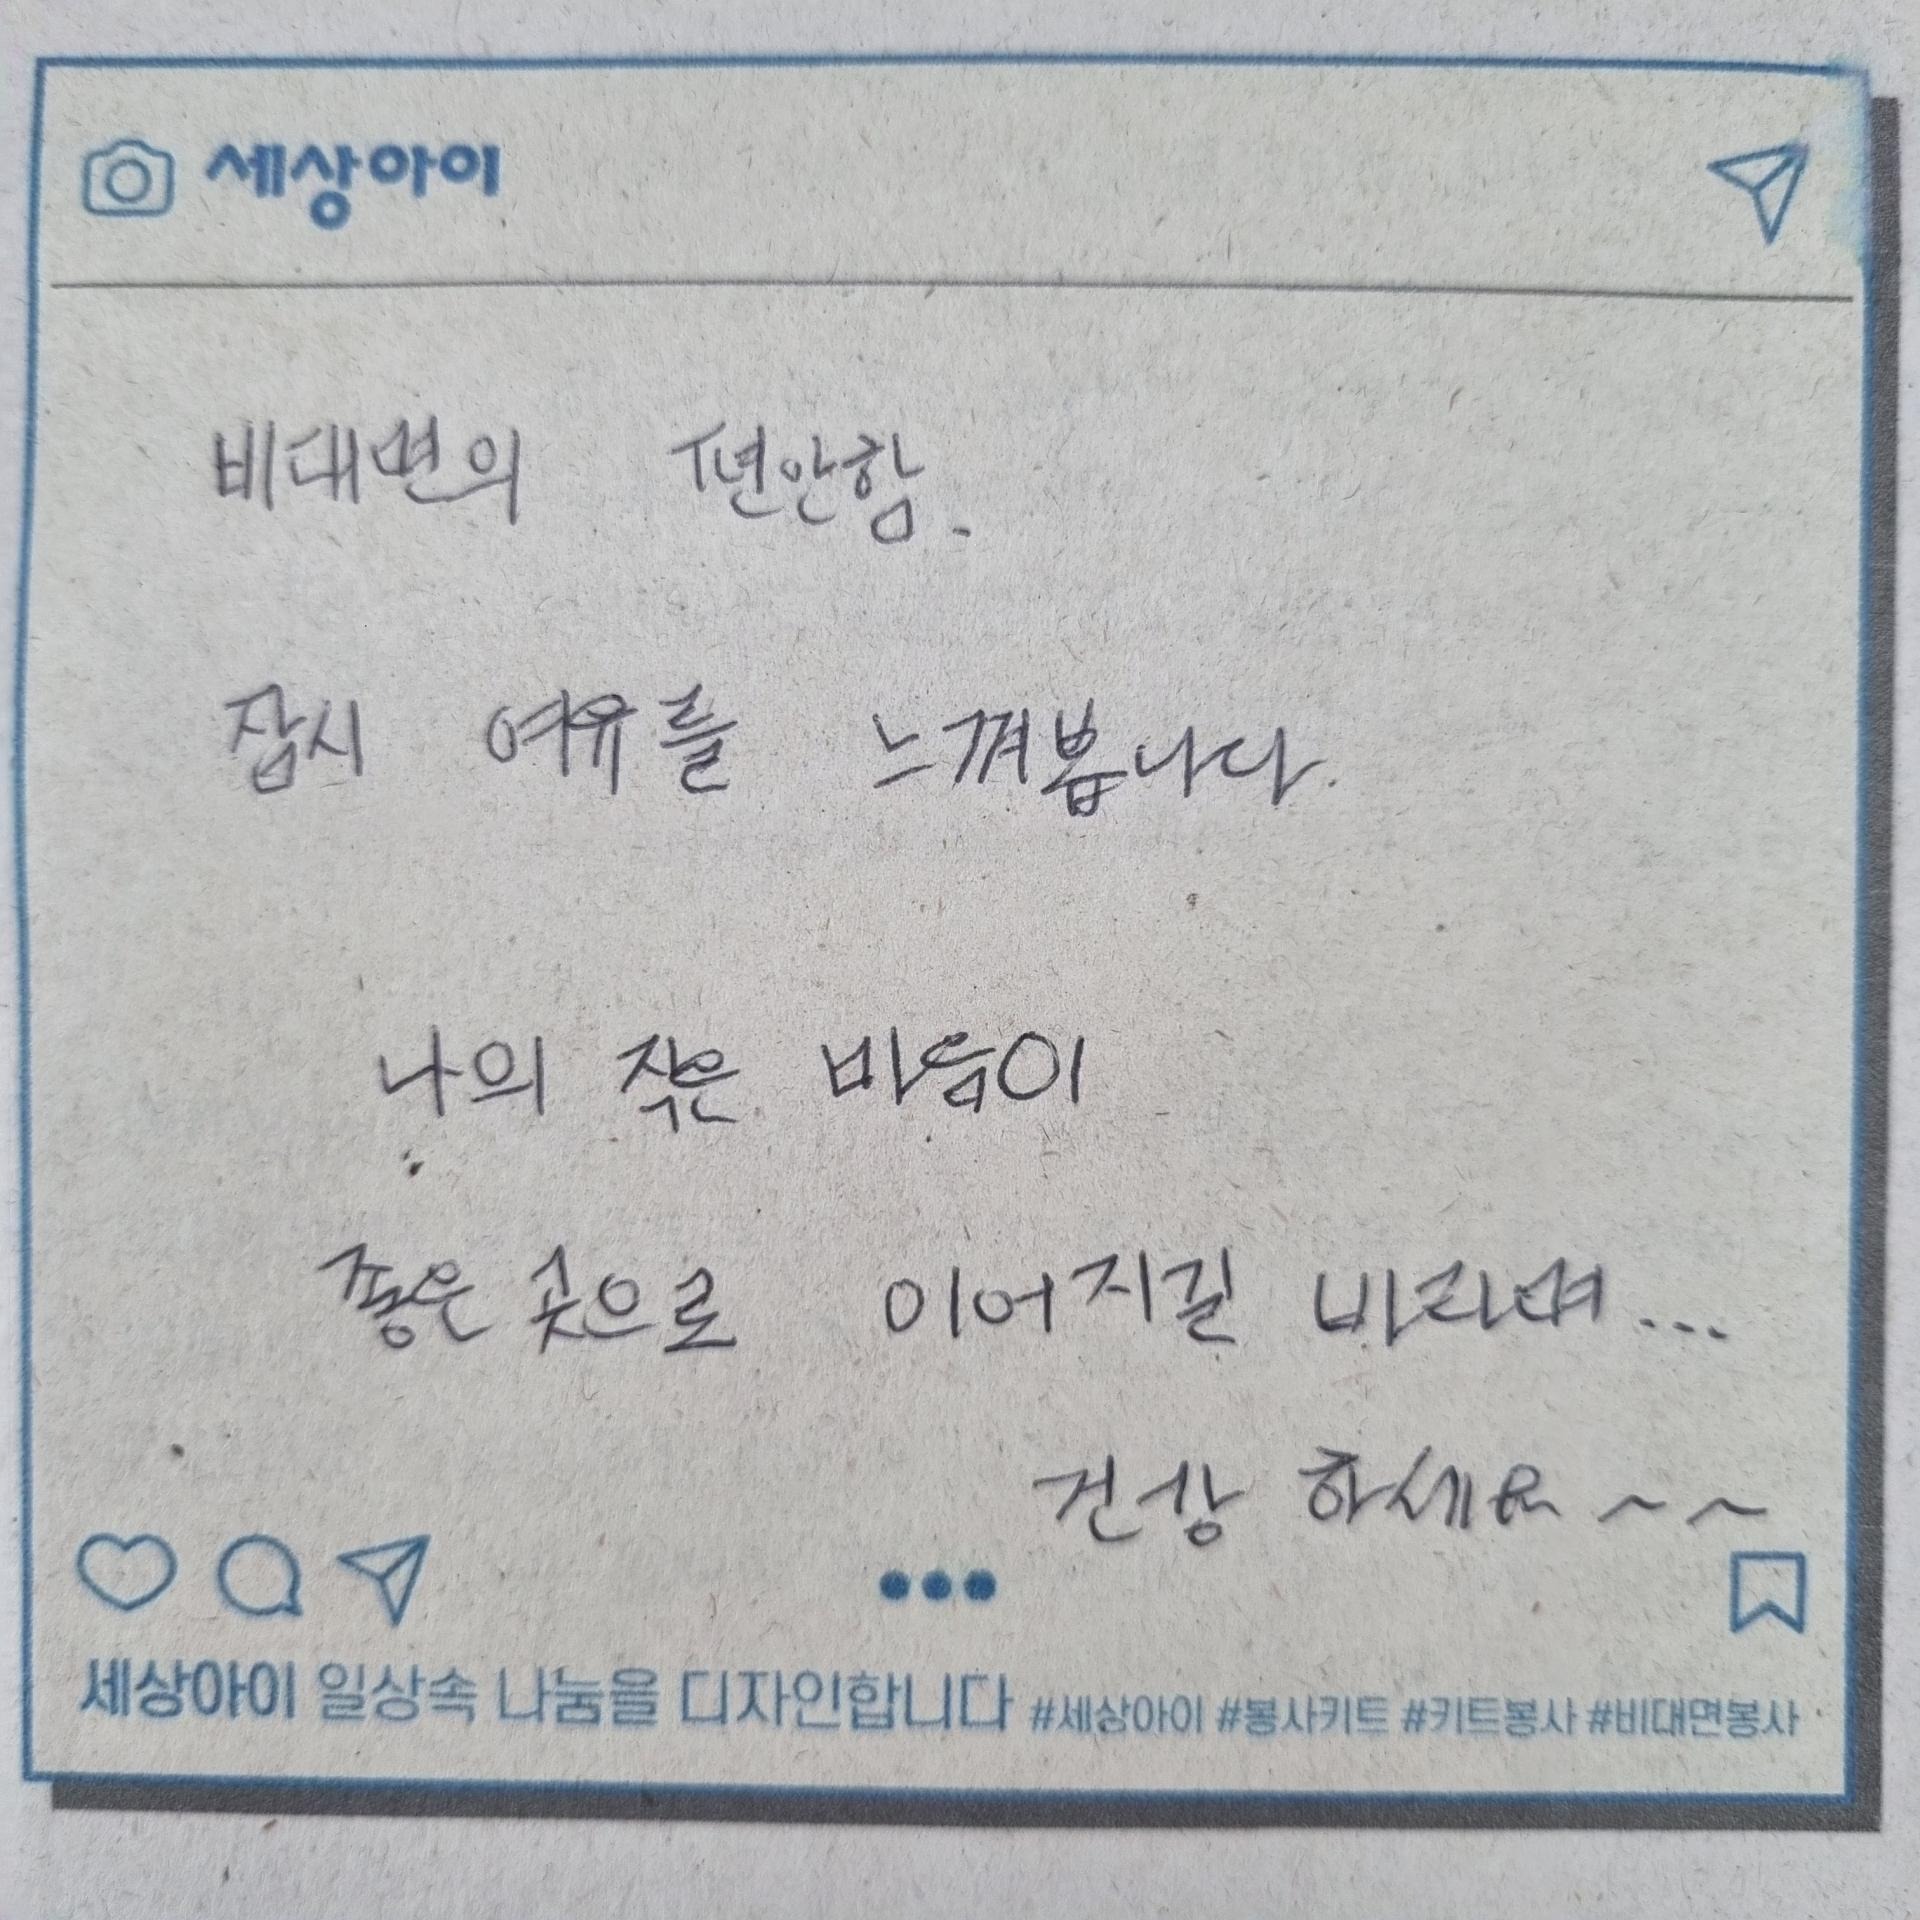 세상아이
비대면의 편안함.
잠시 여유를 느껴봅니다.
나의 작은 마음이
좋은 곳으로 이어지길 바라며...
건강 하세요~~
세상아이 일상속 나눔을 디자인합니다 #세상아이 #봉사키트 #키트봉사 #비대면봉사